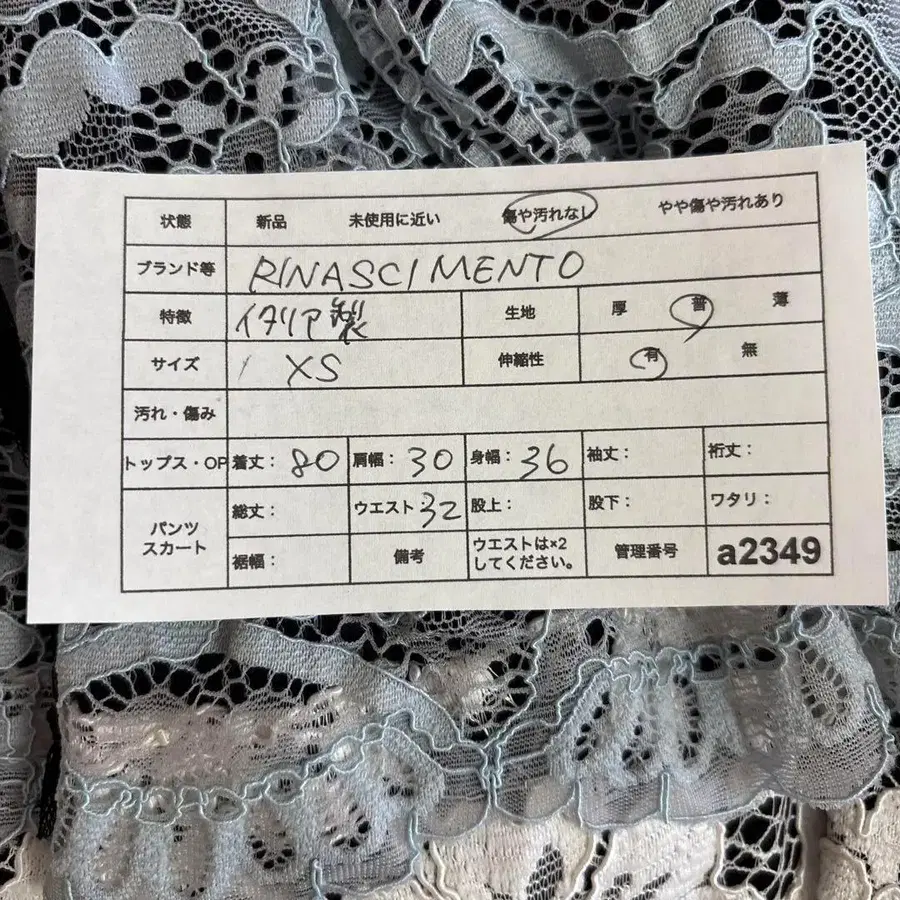 状態 新品 未使用に近い 傷や汚れなし やや傷や汚れあり
ブランド等 RINASCIMENTO
特徴 イタリア製 生地 厚 普 薄
サイズ XS 伸縮性 有 無
汚れ・傷み
トップス・OP 着丈: 80 肩幅: 30 身幅: 36 袖丈: 裄丈:
パンツ スカート 総丈: ウエスト: 32 股上: 股下: ワタリ:
裾幅: 備考 ウエストは×2 してください。 管理番号 a2349